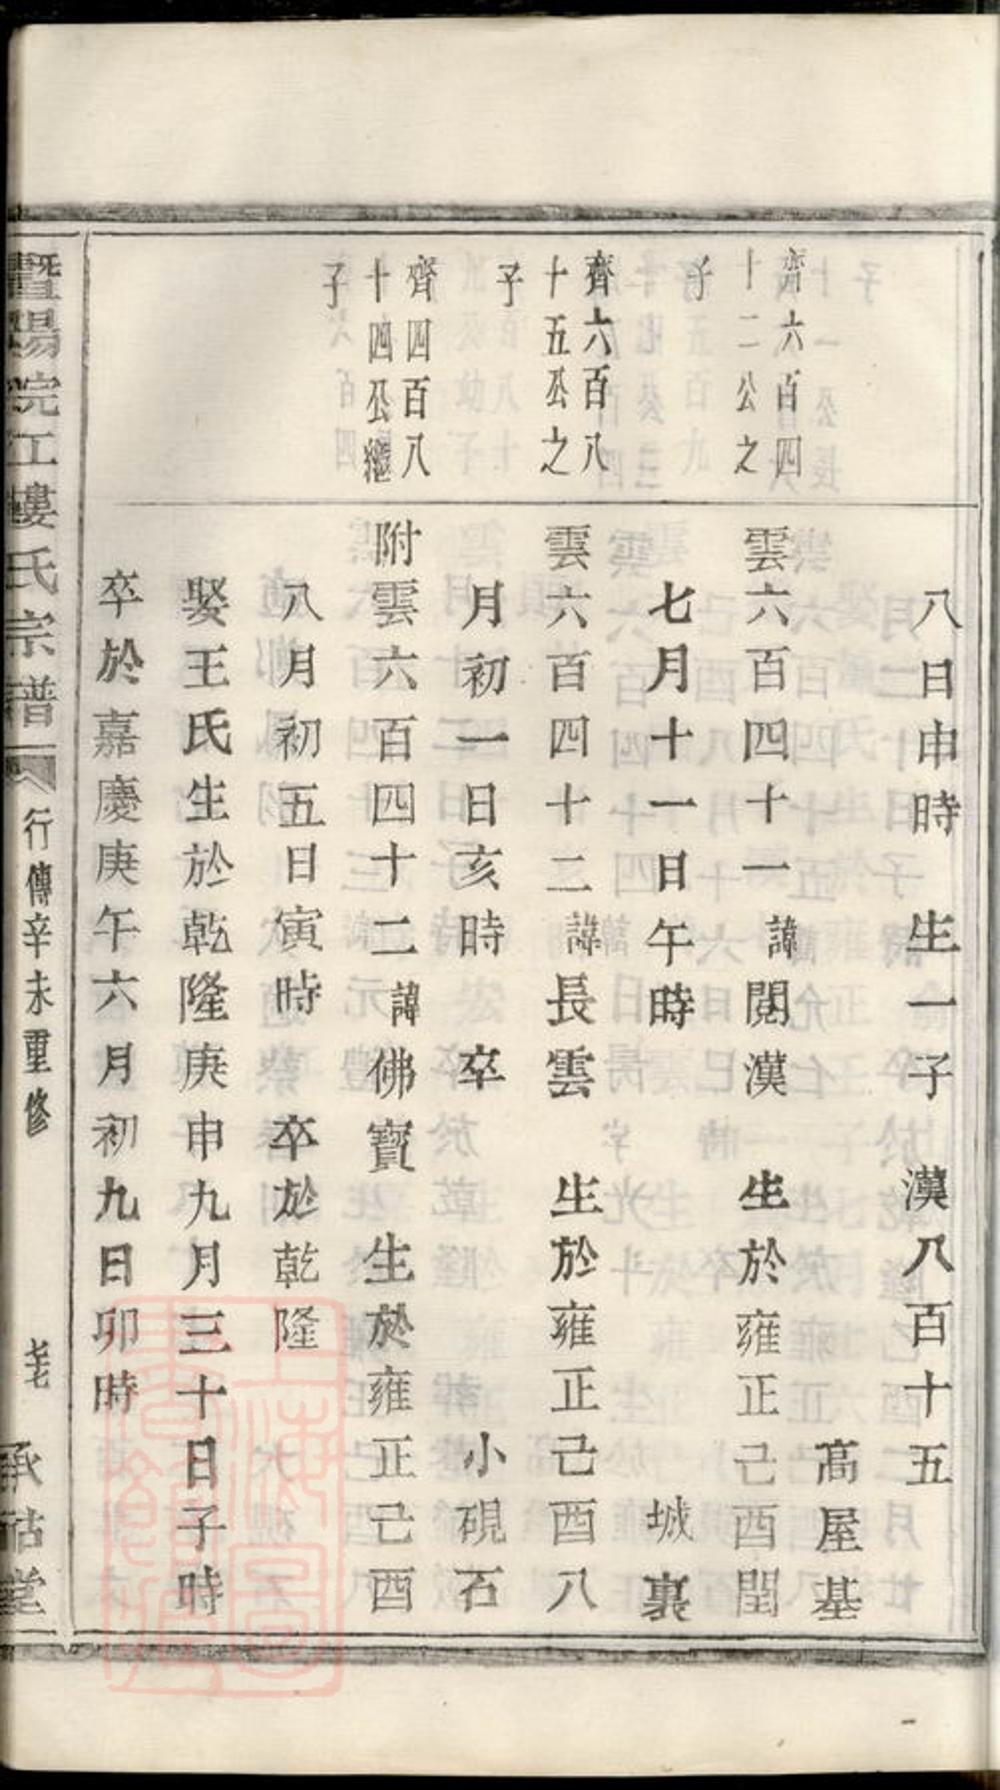 八日申時　生一子　漢八百十五
高屋基
齊六百四
十二公之
子
雲六百四十一諱閱漢　生於雍正己酉閏
七月十一日午時　城裏
齊六百八
十五公之
子
雲六百四十二諱長雲　生於雍正己酉八
月初一日亥時　卒　小硯石
齊四百八
十四公繼
子
附雲六百四十二諱佛寶　生於雍正己酉
八月初五日寅時　卒於乾隆
娶王氏生於乾隆庚申九月三十日子時
卒於嘉慶庚午六月初九日卯時
暨陽浣江樓氏宗譜
行傳辛未重修
承祜堂
上海圖書館藏